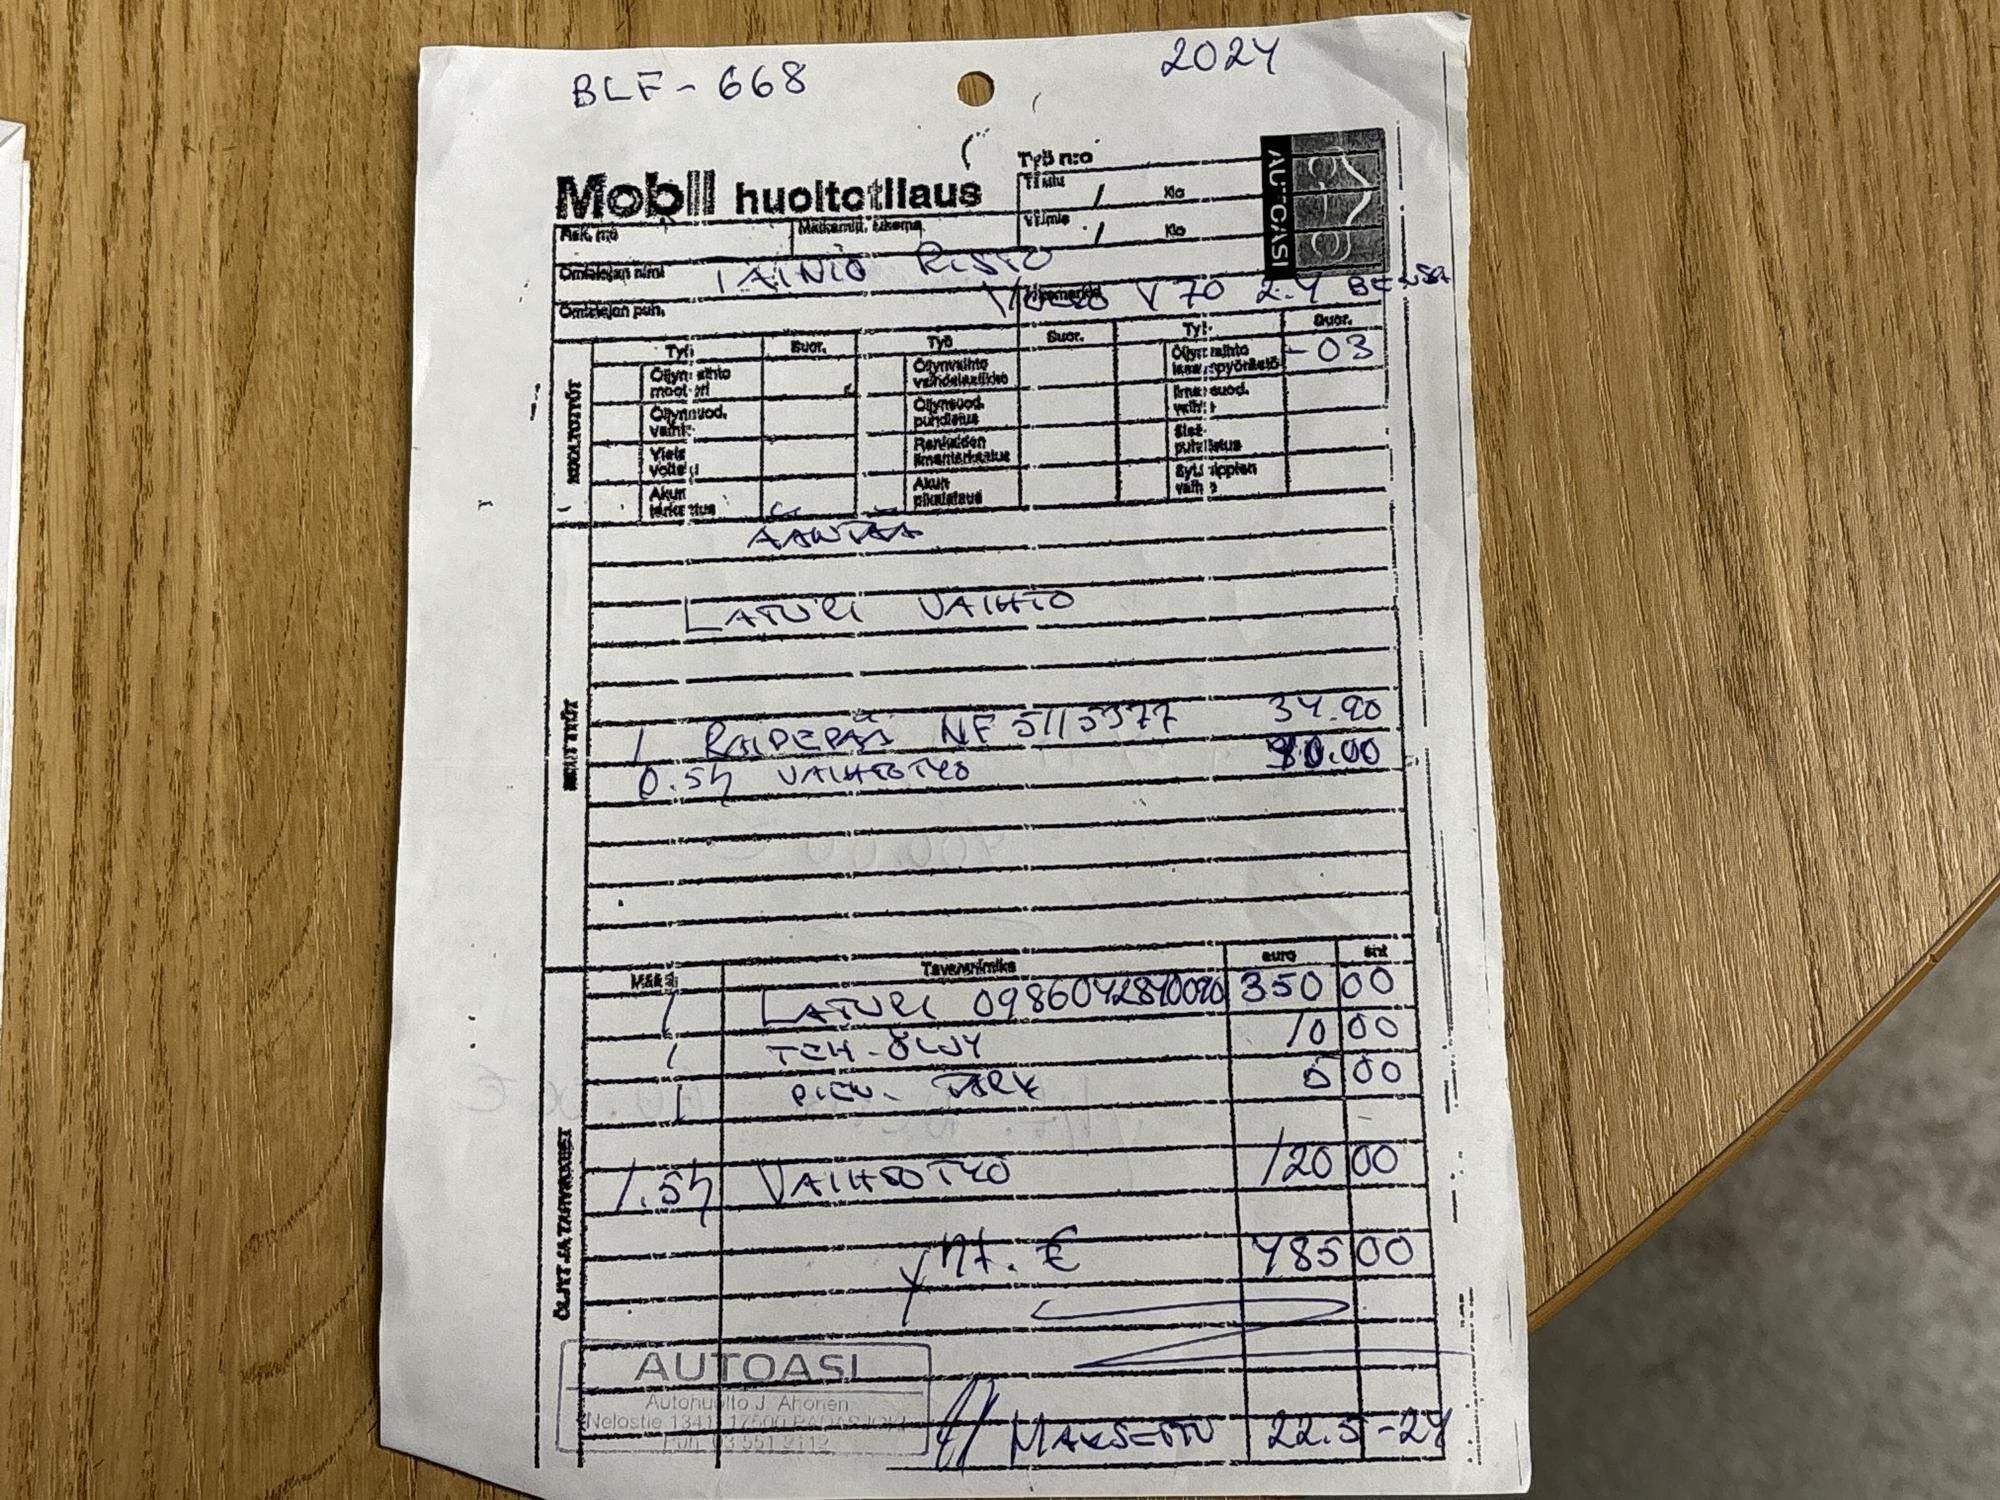 BLF-668
2024
Mobil huoltotilaus
Työ n:o
Tilattu / klo
Valmis / klo
AUTOASI
Rek. n:o
Mittarilk. lukema
Omistajan nimi TAINIO RISTO
Omistajan puh. VOLVO V70 2.4 BENSA
Työ Suor. Työ Suor. Työ Suor.
Öljynvaihto moottori
Öljynvaihto vaihdelaatikko
Öljynvaihto tasauspyörästö
-03
Öljynsuod. vaihto
Öljynsuod. puhdistus
Ilmansuod. vaihto
Renkaiden ilmantarkastus
Akun tarkastus
Akun
Sytt. tulppien vaihto
HUOLTOTYÖT
ÄÄNTÄÄ
LATURI VAIHTO
MUUT TYÖT
1 RAIDEPÄÄ NF5115377 34.90
0.5H VAIHTOTYÖ
Tavaranimike euro snt
1 LATURI 350 00
1 TEH-ÖLJY 10 00
1 PIEN. TARV 5 00
1.5H VAIHTOTYÖ 120 00
yht. € 485 00
ÖLJYT JA TARVIKKEET
AUTOASI
Autohuolto J. Ahonen
Nelostie 1341, 17500 PADASJOKI
Puh. 03 551 2112
MAKSETTU 22.5-24